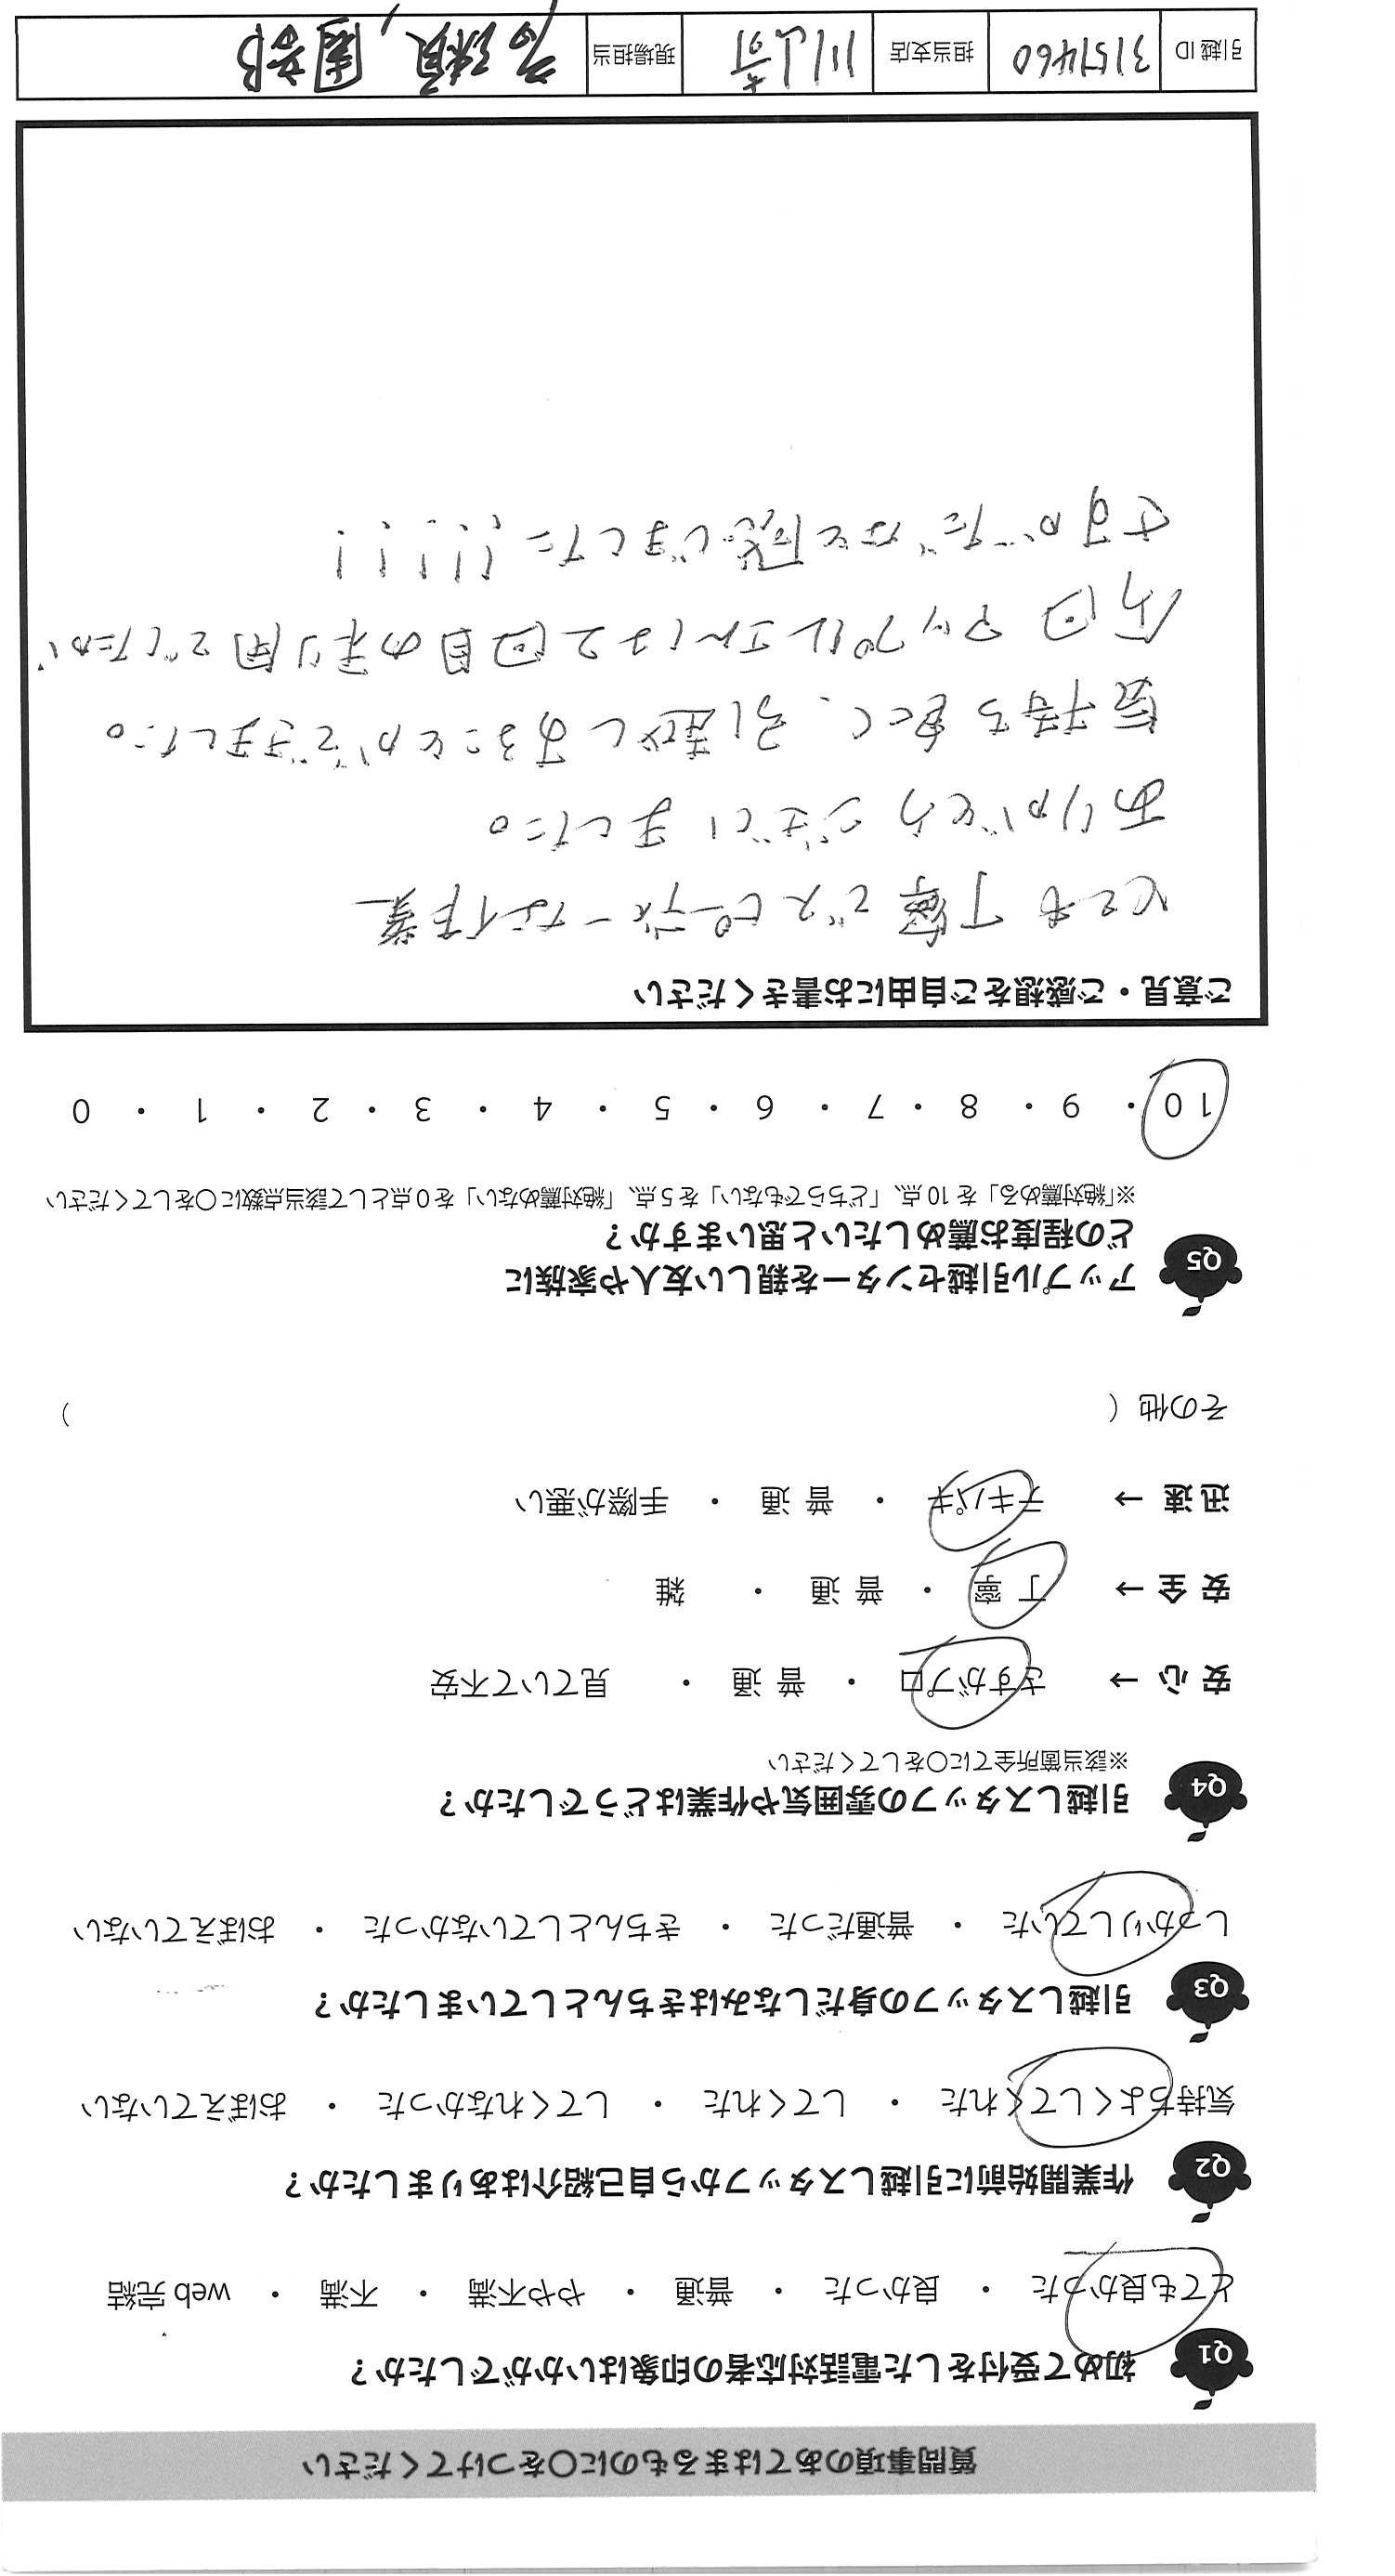 質問事項のあてはまるものに○をつけてください
Q1 初めて受付をした電話対応者の印象はいかがでしたか？
とても良かった ・ 良かった ・ 普通 ・ やや不満 ・ 不満 ・ web 完結
Q2 作業開始前に引越しスタッフから自己紹介はありましたか？
気持ちよくしてくれた ・ してくれた ・ してくれなかった ・ おぼえていない
Q3 引越しスタッフの身だしなみはきちんとしていましたか？
しっかりしていた ・ 普通だった ・ きちんとしていなかった ・ おぼえていない
Q4 引越しスタッフの雰囲気や作業はどうでしたか？
※該当箇所全てに○をしてください
安心 → さすがプロ ・ 普通 ・ 見ていて不安
安全 → 丁寧 ・ 普通 ・ 雑
迅速 → テキパキ ・ 普通 ・ 手際が悪い
その他（ ）
Q5 アップル引越センターを親しい友人や家族に
どの程度お薦めしたいと思いますか？
※「絶対薦める」を 10 点、「どちらでもない」を 5 点、「絶対薦めない」を 0 点として該当点数に○をしてください
10 ・ 9 ・ 8 ・ 7 ・ 6 ・ 5 ・ 4 ・ 3 ・ 2 ・ 1 ・ 0
ご意見・ご感想をご自由にお書きください
とても丁寧でスピーディーな作業
ありがとうございました。
気持ち良く、引越しすることができました。
今回アップルさんは2回目の利用でしたが
さすがだなと感じました!!!!!
引越ID 3157460 担当支店 川崎 現場担当